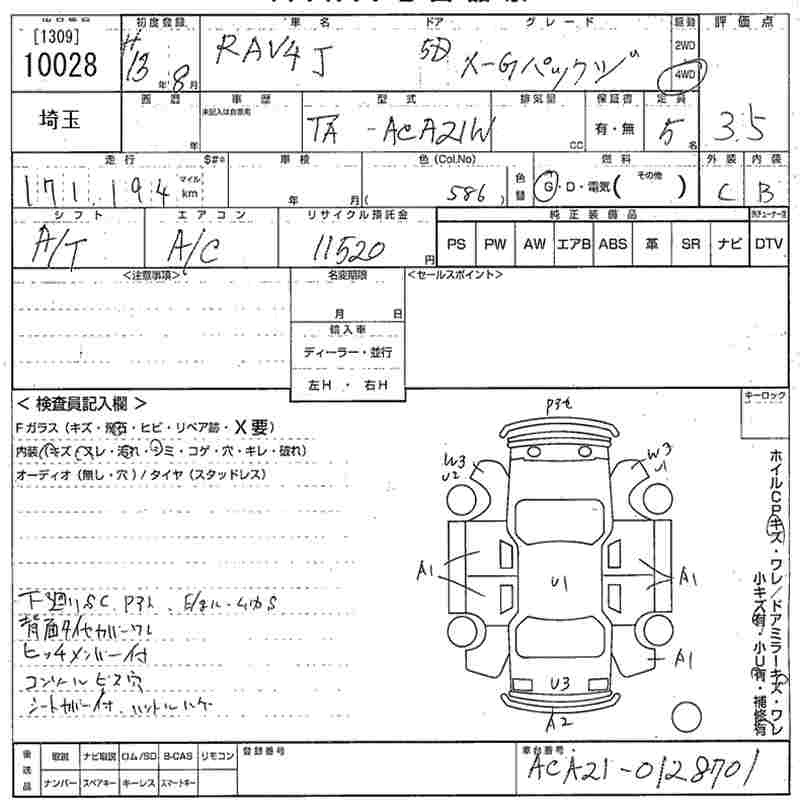 初度登録 車名 ドア グレード 駆動 評価点
[1309]
10028
13 8月 RAV4 J 5D X-Gパッケージ 2WD
4WD
埼玉
西暦 年 車歴 型式 排気量 保証書 定員
未記入は自家用
TA -ACA21W cc 有・無 5名 3.5
走行 $#* 車検 色(Col.No) 燃料 外装 内装
171,194 マイル km 年 月( 586 ) 色替 G・D・電気( その他 ) C B
シフト エアコン リサイクル預託金 純正装備品
A/T A/C 11520円 PS PW AW エアB ABS 革 SR ナビ DTV
<注意事項> 名変期限 <セールスポイント>
月 日
輸入車
ディーラー・並行
左H ・ 右H
< 検査員記入欄 > キーロック
Fガラス(キズ・飛石・ヒビ・リペア跡・X要)
内装(キズ・スレ・汚れ・シミ・コゲ・穴・キレ・破れ)
オーディオ(無し・穴)/タイヤ(スタッドレス)
P3セ
W3
U2
W3
U1
A1
U1
A1
A1
U3
A2
ホイルCPキズ・ワレ/ドアミラーキズ・ワレ
小キズ有・小U有・補修有
下廻りSC P3セ
背面タイヤカバーワレ
ヒッチメンバー付
コンソールビス穴
シートカバー付 ハンドルハゲ
後送品 取説 ナビ取説 ロム/SD B-CAS リモコン 登録番号 車台番号
ナンバー スペアキー キーレス スマートキー ACA21-0128701